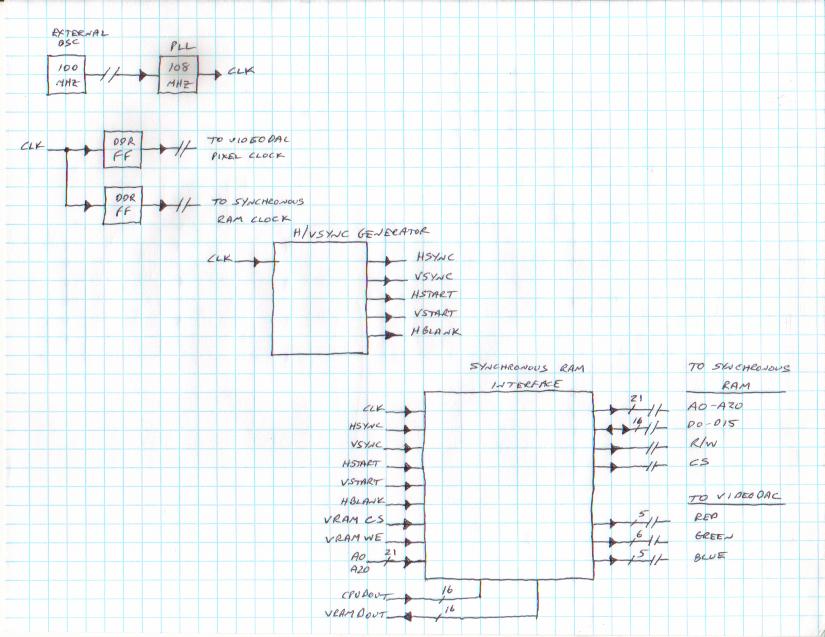 EXTERNAL
OSC
PLL
100
MHZ
108
MHZ
CLK
CLK
DDR
FF
TO VIDEODAC
PIXEL CLOCK
DDR
FF
TO SYNCHRONOUS
RAM CLOCK
H/VSYNC GENERATOR
CLK
HSYNC
VSYNC
HSTART
VSTART
HBLANK
SYNCHRONOUS RAM
INTERFACE
TO SYNCHRONOUS
RAM
CLK
HSYNC
VSYNC
HSTART
VSTART
HBLANK
VRAM CS
VRAM WE
A0
A20
21
21
A0-A20
16
D0-D15
R/W
CS
TO VIDEODAC
5
RED
6
GREEN
5
BLUE
CPUDOUT
16
VRAMDOUT
16